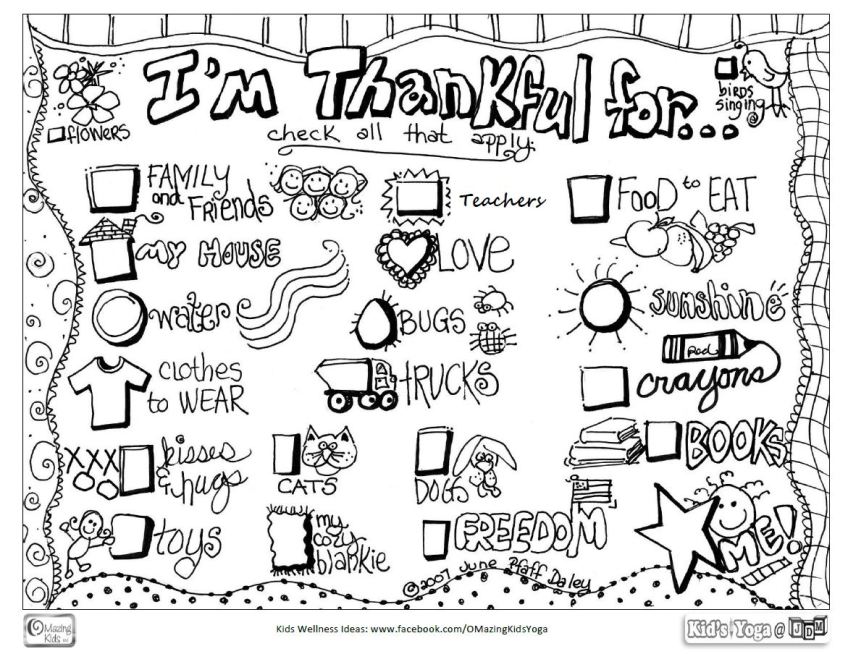 I'm Thankful for...
birds
singing
flowers
check all that apply:
FAMILY
and Friends
Teachers
FOOD to EAT
MY HOUSE
LOVE
water
BUGS
sunshine
clothes
to WEAR
tRUCKS
Red
crayons
XXX
kisses
& hugs
CATS
DOGS
BOOKS
toys
my
cozy
blankie
FREEDOM
ME!
©2007 June Pfaff Daley
OMazing
Kids LLC
Kids Wellness Ideas: www.facebook.com/OMazingKidsYoga
Kid's Yoga @ JDM